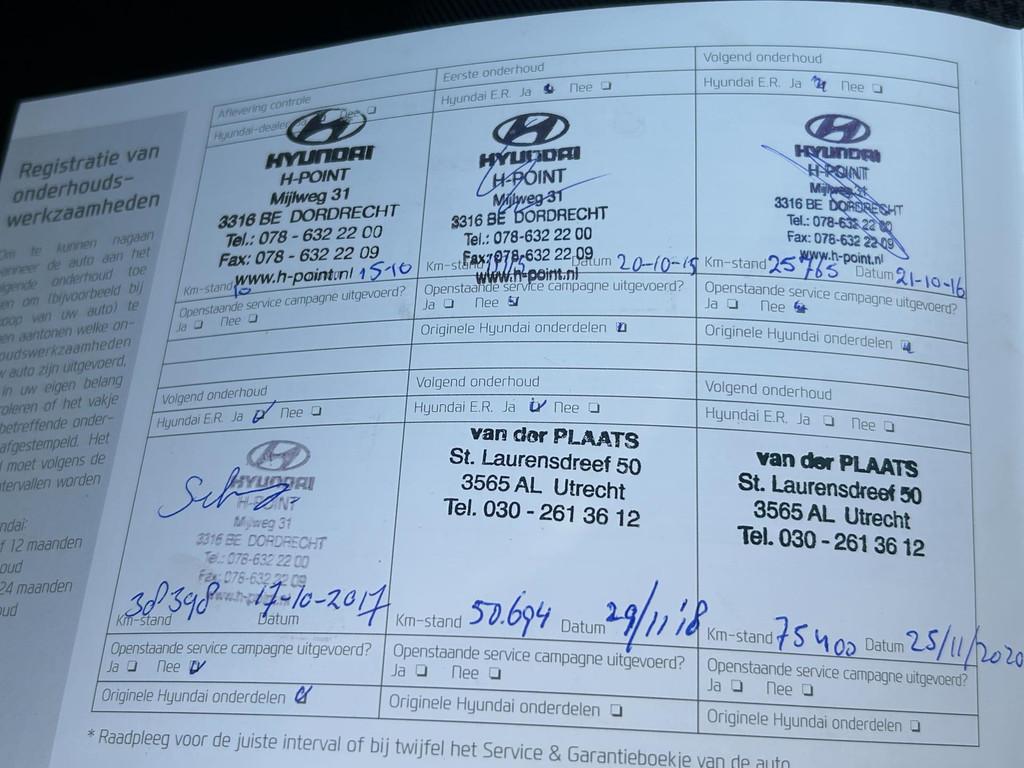 Registratie van
onderhouds-
werkzaamheden
Om te kunnen nagaan
wanneer de auto aan het
toe
en om (bijvoorbeeld bij
koop van uw auto) te
en aantonen welke on-
oudswerkzaamheden
auto zijn uitgevoerd,
in uw eigen belang
roleren of het vakje
betreffende onder-
afgestempeld. Het
moet volgens de
tervallen worden
ndai:
f 12 maanden
oud
24 maanden
ud
Aflevering controle
Hyundai-dealer Nee
HYUNDAI
H-POINT
Mijlweg 31
3316 BE DORDRECHT
Tel.: 078 - 632 22 00
Fax: 078 - 632 22 09
www.h-point.nl
Km-stand 10 15-10
Openstaande service campagne uitgevoerd?
Ja Nee
Eerste onderhoud
Hyundai E.R. Ja Nee
HYUNDAI
H-POINT
Mijlweg 31
3316 BE DORDRECHT
Tel.: 078 - 632 22 00
Fax: 078 - 632 22 09
www.h-point.nl
Km-stand Datum 20-10-15
Openstaande service campagne uitgevoerd?
Ja Nee
Originele Hyundai onderdelen
Volgend onderhoud
Hyundai E.R. Ja Nee
HYUNDAI
H-POINT
Mijlweg 31
3316 BE DORDRECHT
Tel.: 078-632 22 00
Fax: 078-632 22 09
www.h-point.nl
Km-stand 25765 Datum 21-10-16
Openstaande service campagne uitgevoerd?
Ja Nee
Originele Hyundai onderdelen
Volgend onderhoud
Hyundai E.R. Ja Nee
HYUNDAI
H-POINT
Mijlweg 31
3316 BE DORDRECHT
Tel.: 078-632 22 00
Fax: 078-632 22 09
www.h-point.nl
Km-stand 38398 Datum 17-10-2017
Openstaande service campagne uitgevoerd?
Ja Nee
Originele Hyundai onderdelen
Volgend onderhoud
Hyundai E.R. Ja Nee
van der PLAATS
St. Laurensdreef 50
3565 AL Utrecht
Tel. 030 - 261 36 12
Km-stand 50.694 Datum 29/11 '18
Openstaande service campagne uitgevoerd?
Ja Nee
Originele Hyundai onderdelen
Volgend onderhoud
Hyundai E.R. Ja Nee
van der PLAATS
St. Laurensdreef 50
3565 AL Utrecht
Tel. 030 - 261 36 12
Km-stand 75400 Datum 25/11/2020
Openstaande service campagne uitgevoerd?
Ja Nee
Originele Hyundai onderdelen
* Raadpleeg voor de juiste interval of bij twijfel het Service & Garantieboekje van de auto